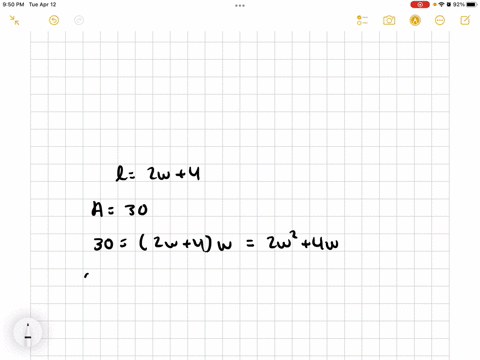 9:50 PM Tue Apr 12
92%
l = 2w + 4
A = 30
30 = (2w + 4) w = 2w² + 4w